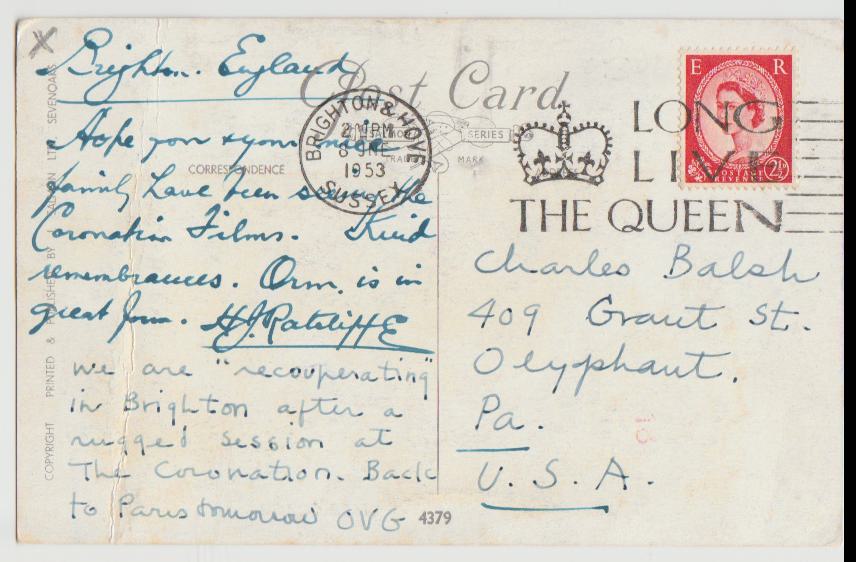 Brighton. England
Post Card
Hope you & your nice
CORRESPONDENCE
family have been seeing the
Coronation Films. Kind
remembrances. Orm. is in
great form. H.J. Ratcliffe
we are "recouperating"
in Brighton after a
rugged session at
The Coronation. Back
to Paris tomorrow OVG
4379
BRIGHTON & HOVE
SUSSEX
2 PM
8 JNE
1953
SERIES
TRADE MARK
LONG
LIVE
THE QUEEN
E R
POSTAGE
REVENUE
2½D
Charles Balsh
409 Grant St.
Olyphant.
Pa.
U. S. A.
COPYRIGHT PRINTED & PUBLISHED BY J. SALMON LTD. SEVENOAKS